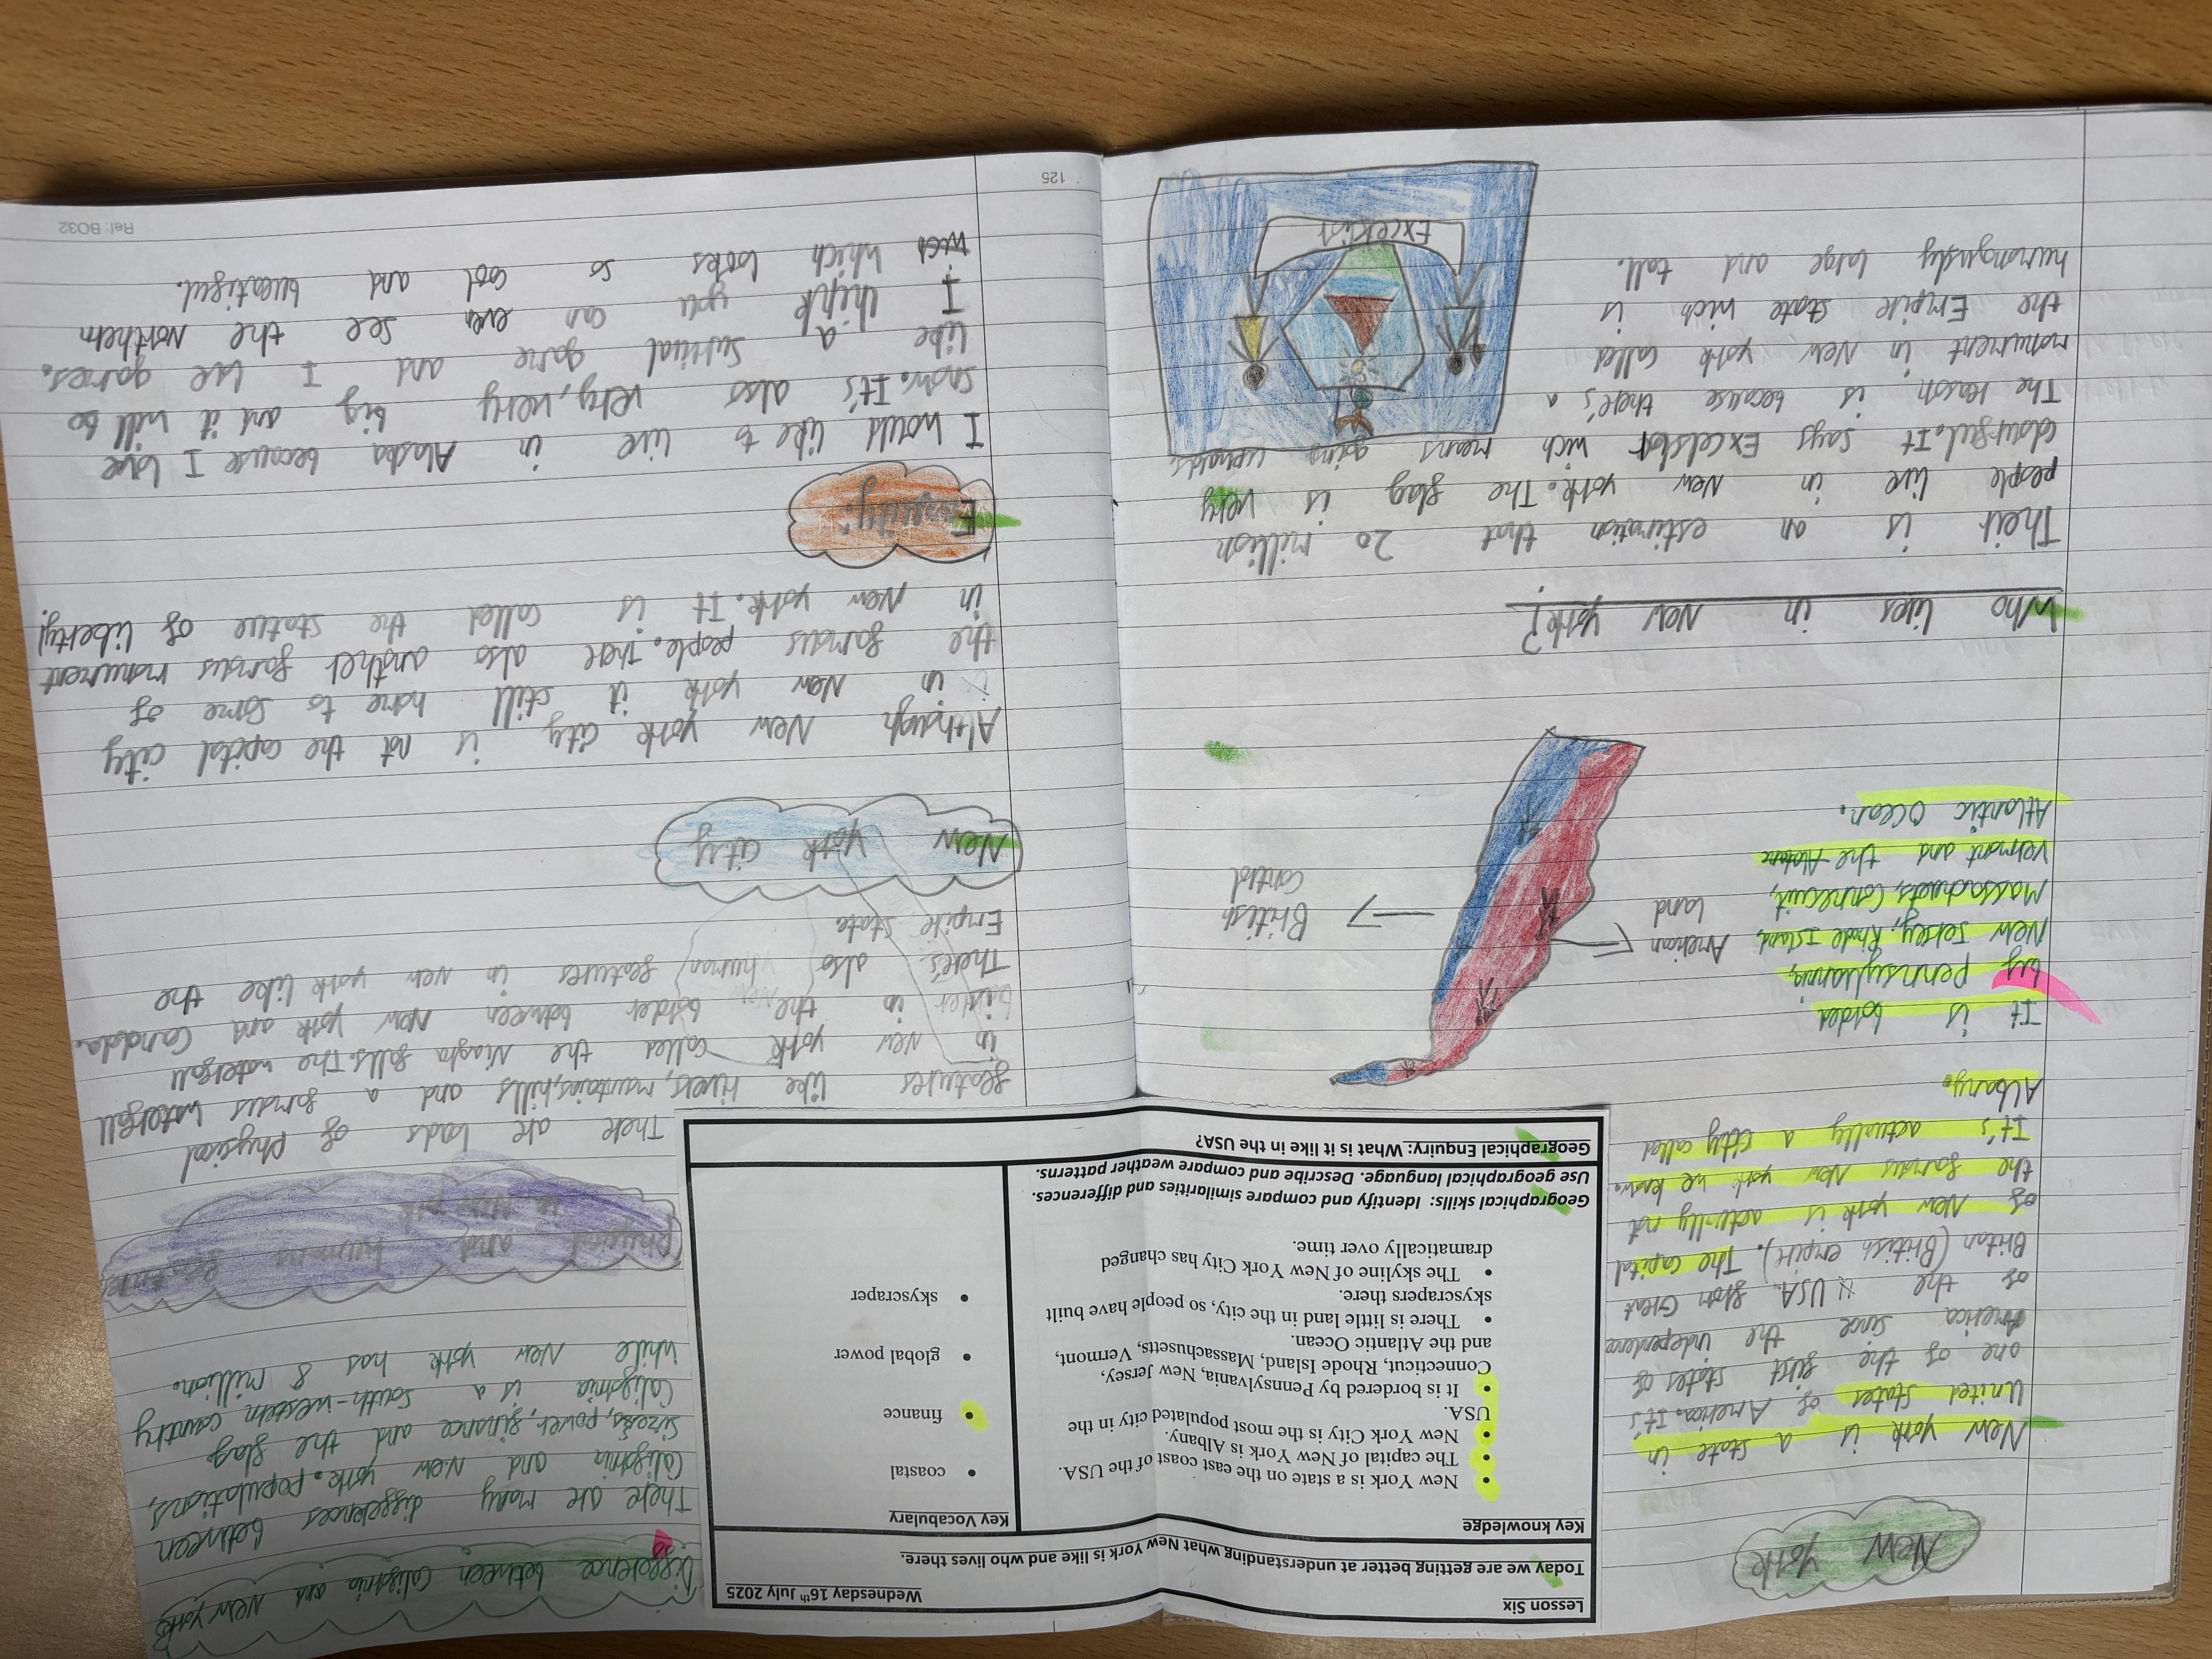 New York
New York is a state in
United states of America. It's
one of the first states of
America since the independence
of the USA from Great
Britan (British empire). The capital
of New York is actually not
the famous New York we know.
It's actually a city called
Albany.
It is border
by Pennsylvania,
New Jersey, Rhode Island,
Massachusets, Connecuit,
Vermont and the
Atlantic Ocean.
American
land
British
control
Who lives in New York?
Their is an estimation that 20 million
people live in New York. The flag is very
colourful. It says Excelsior wich means going upwards.
The reason is because there's a
monument in New York called
the Empire state wich is
humongusly large and tall.
Excelsior
Lesson Six
Wednesday 16th July 2025
Today we are getting better at understanding what New York is like and who lives there.
Key knowledge
• New York is a state on the east coast of the USA.
• The capital of New York is Albany.
• New York City is the most populated city in the
USA.
• It is bordered by Pennsylvania, New Jersey,
Connecticut, Rhode Island, Massachusetts, Vermont,
and the Atlantic Ocean.
• There is little land in the city, so people have built
skyscrapers there.
• The skyline of New York City has changed
dramatically over time.
Key Vocabulary
• coastal
• finance
• global power
• skyscraper
Geographical skills: Identify and compare similarities and differences.
Use geographical language. Describe and compare weather patterns.
Geographical Enquiry: What is it like in the USA?
Difference between California and New York
There are many differences between
California and New York. Populations,
sizes, power, finance and the flag.
California is a south-western country
while New York has 8 million.
Physical and human features
in New York
There are loads of physical
features like rivers, mountains, hills and a famous waterfall
in New York called the Niagra falls. The waterfall
in the border between New York and Canada.
There's also human features in New York like the
Empire state.
New York city
Although New York city is not the capital city
in New York it still home to some of
the famous people. There also another famous monument
in New York. It is called the statue of liberty!
Enquiry:
I would like to live in Alaska because I love
snow. It's also very, very big and it will be
like a survival game and I love games.
I think you can even see the Northern
which looks so cool and bueatiful.
125
Ref: BO32